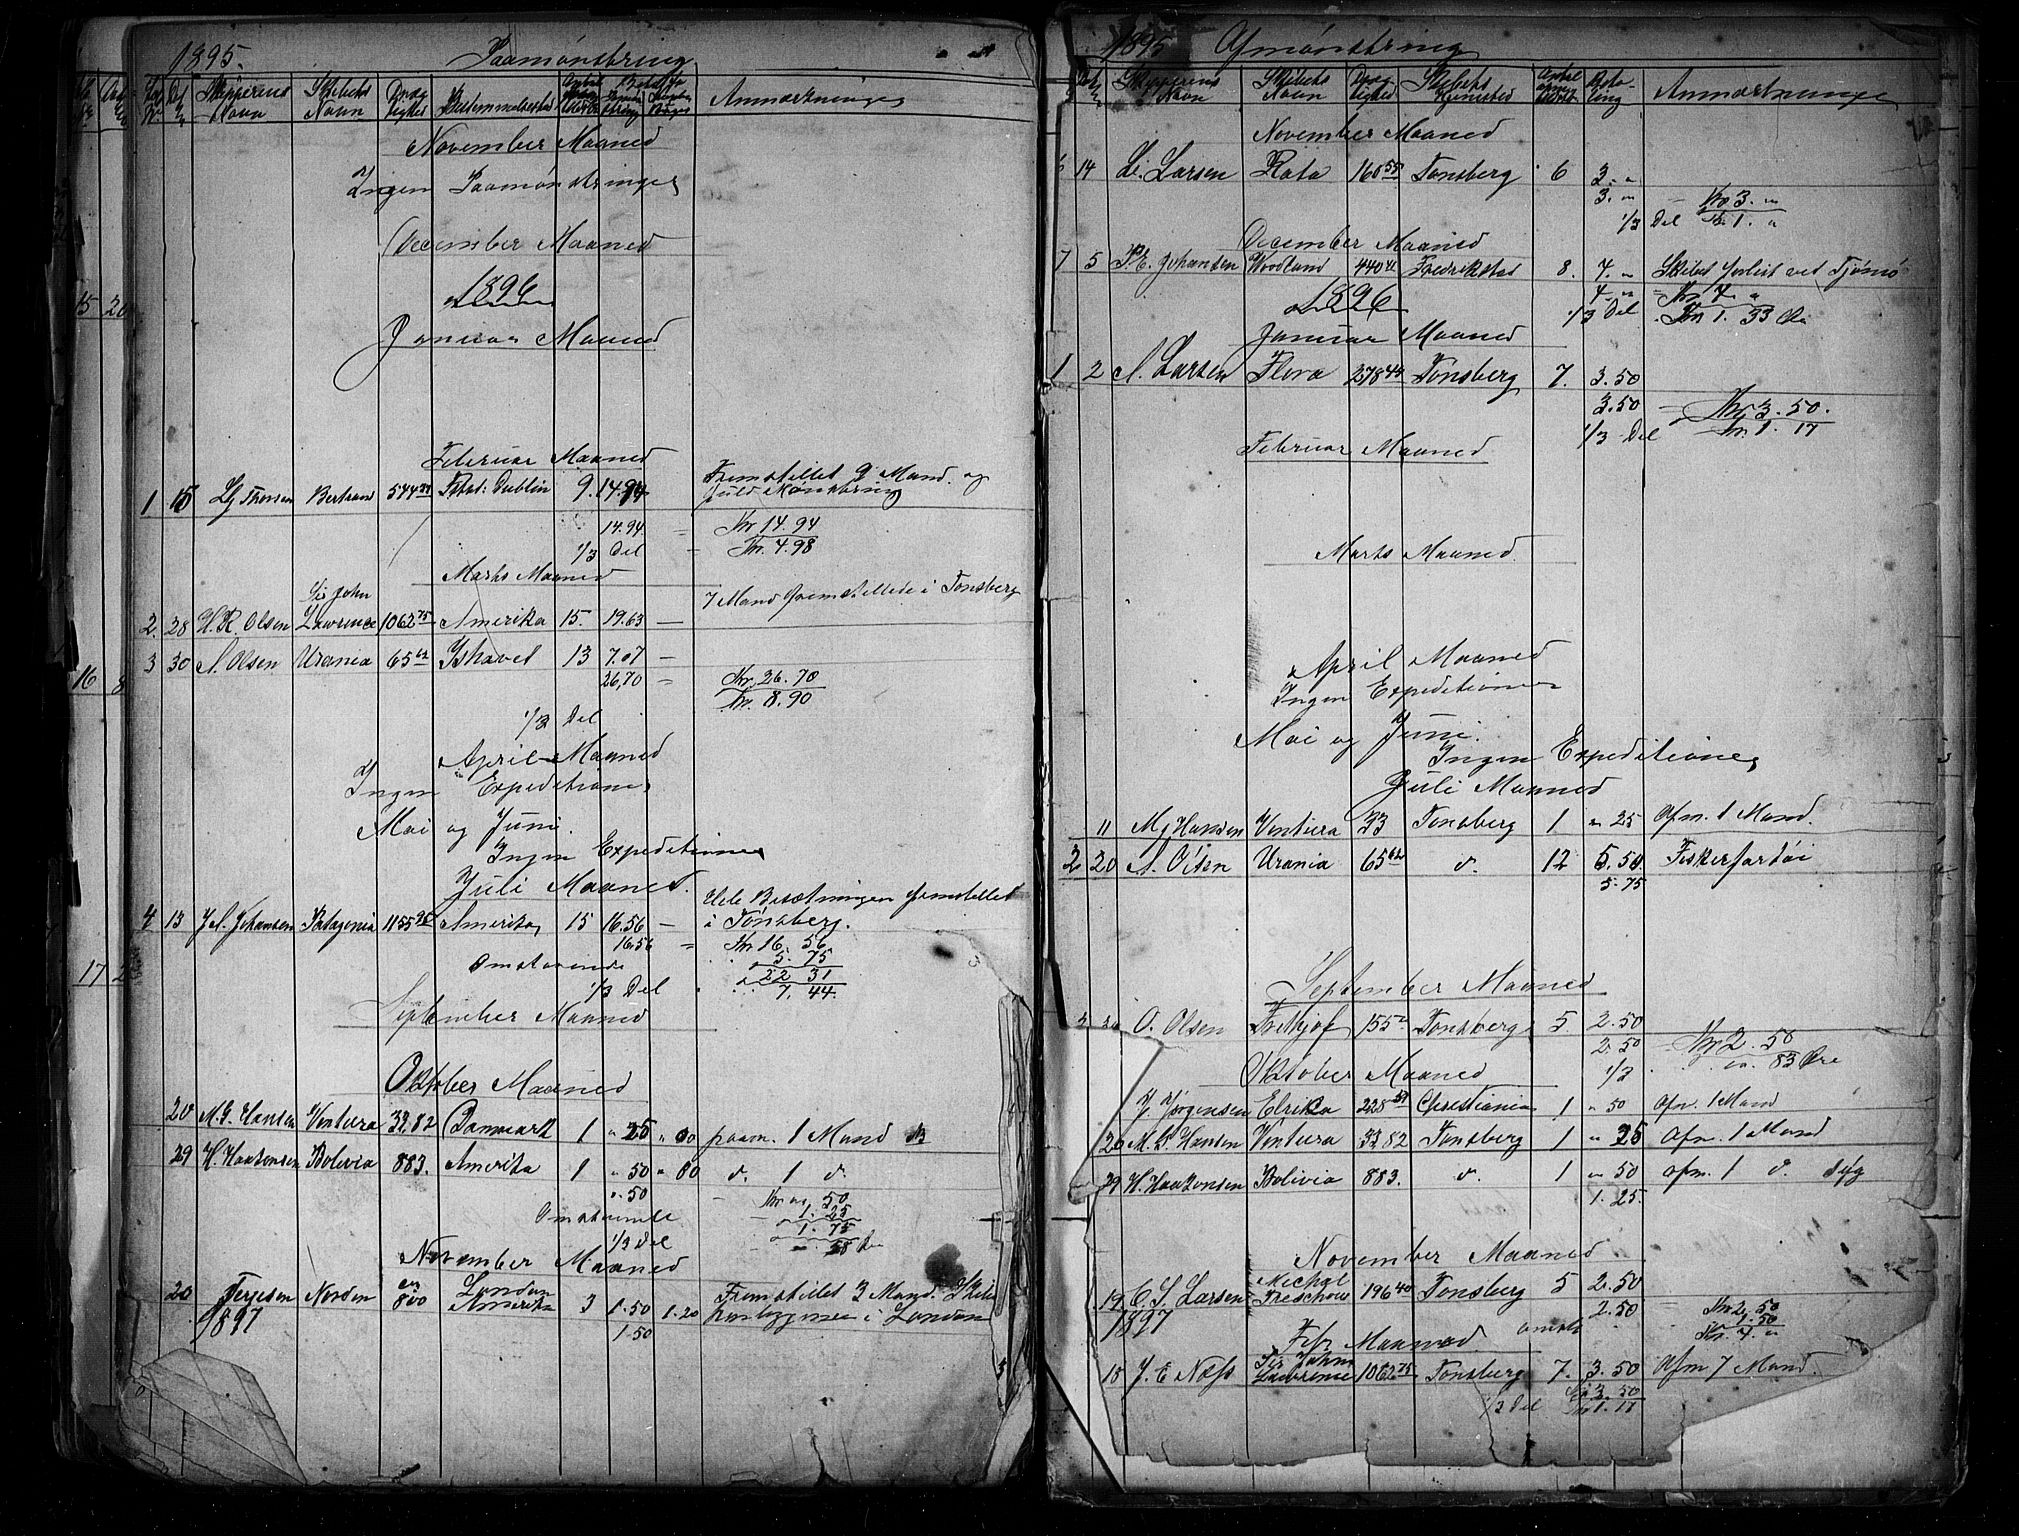 1895. Paamønstring
Skipperens Navn Skibets Navn Drægtighed Bestemmelsessted Anmærkninger
November Maaned
Ingen Paamønstringer
December Maaned
1896
Januar Maaned
Februar Maaned
1 15 Thorsen Bertrand 544 Dublin 9. 14.94 Fremstillet 9 Mand og
14.94 = Kr 14.94
1/3 Del = Kr. 4.98
Marts Maaned
7 Mand fremstillede i Tønsberg
2. 28 H. R. Olsen Sir John Lawrence 1062 75 Amerika 15. 19.63 —
3 30 A. Olsen Urania 65 62 Ishavet 13 7.07 —
26,70 = Kr. 26.70
1/3 Del Kr. 8.90
April Maaned
Ingen Expeditioner
Mai og Juni.
Ingen Expeditioner
Juli Maaned.
Hele Besætningen fremstillet
4 13 J. A. Johansen Patagonia 1155 35 Amerika 15 16.56 — i Tønsberg.
16.56 = Kr 16.56
Omstaaende 5.75
22 31
1/3 Del 7.44
September Maaned
Oktober Maaned
20 M. G. Hansen Ventura 32.82 Danmark 1 " 25 " 80 paam. 1 Mand
29 H. Haakonsen Bolivia 883. Amerika 1 " 50 " 80 d. 1 d.
".50 Kr " 50
Omstaaende 1.25
1.75
1/3 Del 58 Øre
November Maaned
20 Terjesen Norden 800 London Amerika 3 1.50 1.20 Fremstillet 3 Mand. Skibet
1897 1.50 i London
1895 Afmønstring
Skipperens Navn Skibets Navn Drægtighed Skibets Hjemsted Betaling Anmærkninger
November Maaned
6 14 L. Larsen Rota 160 Tønsberg 6 3. "
3. " — Kr 3. "
1/3 Del — Kr. 1. "
December Maaned
7 5 P. E. Johansen Woodland 440 Fredrikstad 8. 4. " Skibet forlist ved Tjømø
1896 4. " = Kr 4. "
1/3 Del Kr 1. 33 Øre
Januar Maaned
1 2 A. Larsen Flora 278 Tønsberg 7. 3.50
3.50 — Kr 3.50.
1/3 Del Kr. 1. 17
Februar Maaned
Marts Maaned.
April Maaned
Ingen Expeditioner
Mai og Juni.
Ingen Expeditioner
Juli Maaned
11 M. G. Hansen Ventura 33 Tønsberg 1 " 25 Afm. 1 Mand.
2 20 A. Olsen Urania 65 62 d. 12 5.50.
5.75
September Maaned
O. Olsen Frithjof 155 Tønsberg 5 2.50
2.50 — Kr 2.50
Oktober Maaned 1/3 " 83 Øre
J. Jørgensen Elrika 228 Christiania 1 " 50 Afm. 1 Mand
20 M. G. Hansen Ventura 32 82 Tønsberg 1 " 25 Afm. 1 Mand
29 H. Haakonsen Bolivia 883. d. 1 " 50 Afm. 1 d. syg
1.25.
November Maaned
19 C. S. Larsen Michal Treschow 196 40 Tønsberg 5 2.50
1897 2.50 — Kr 2.50
1.50
Kr. 4. "
Febr Maaned
18 J. E. Næss Sir John Lawrence 1062 75 Tønsberg 7. 3.50 Afm 7 Mand.
3.50
1/3 Del Kr 1.17